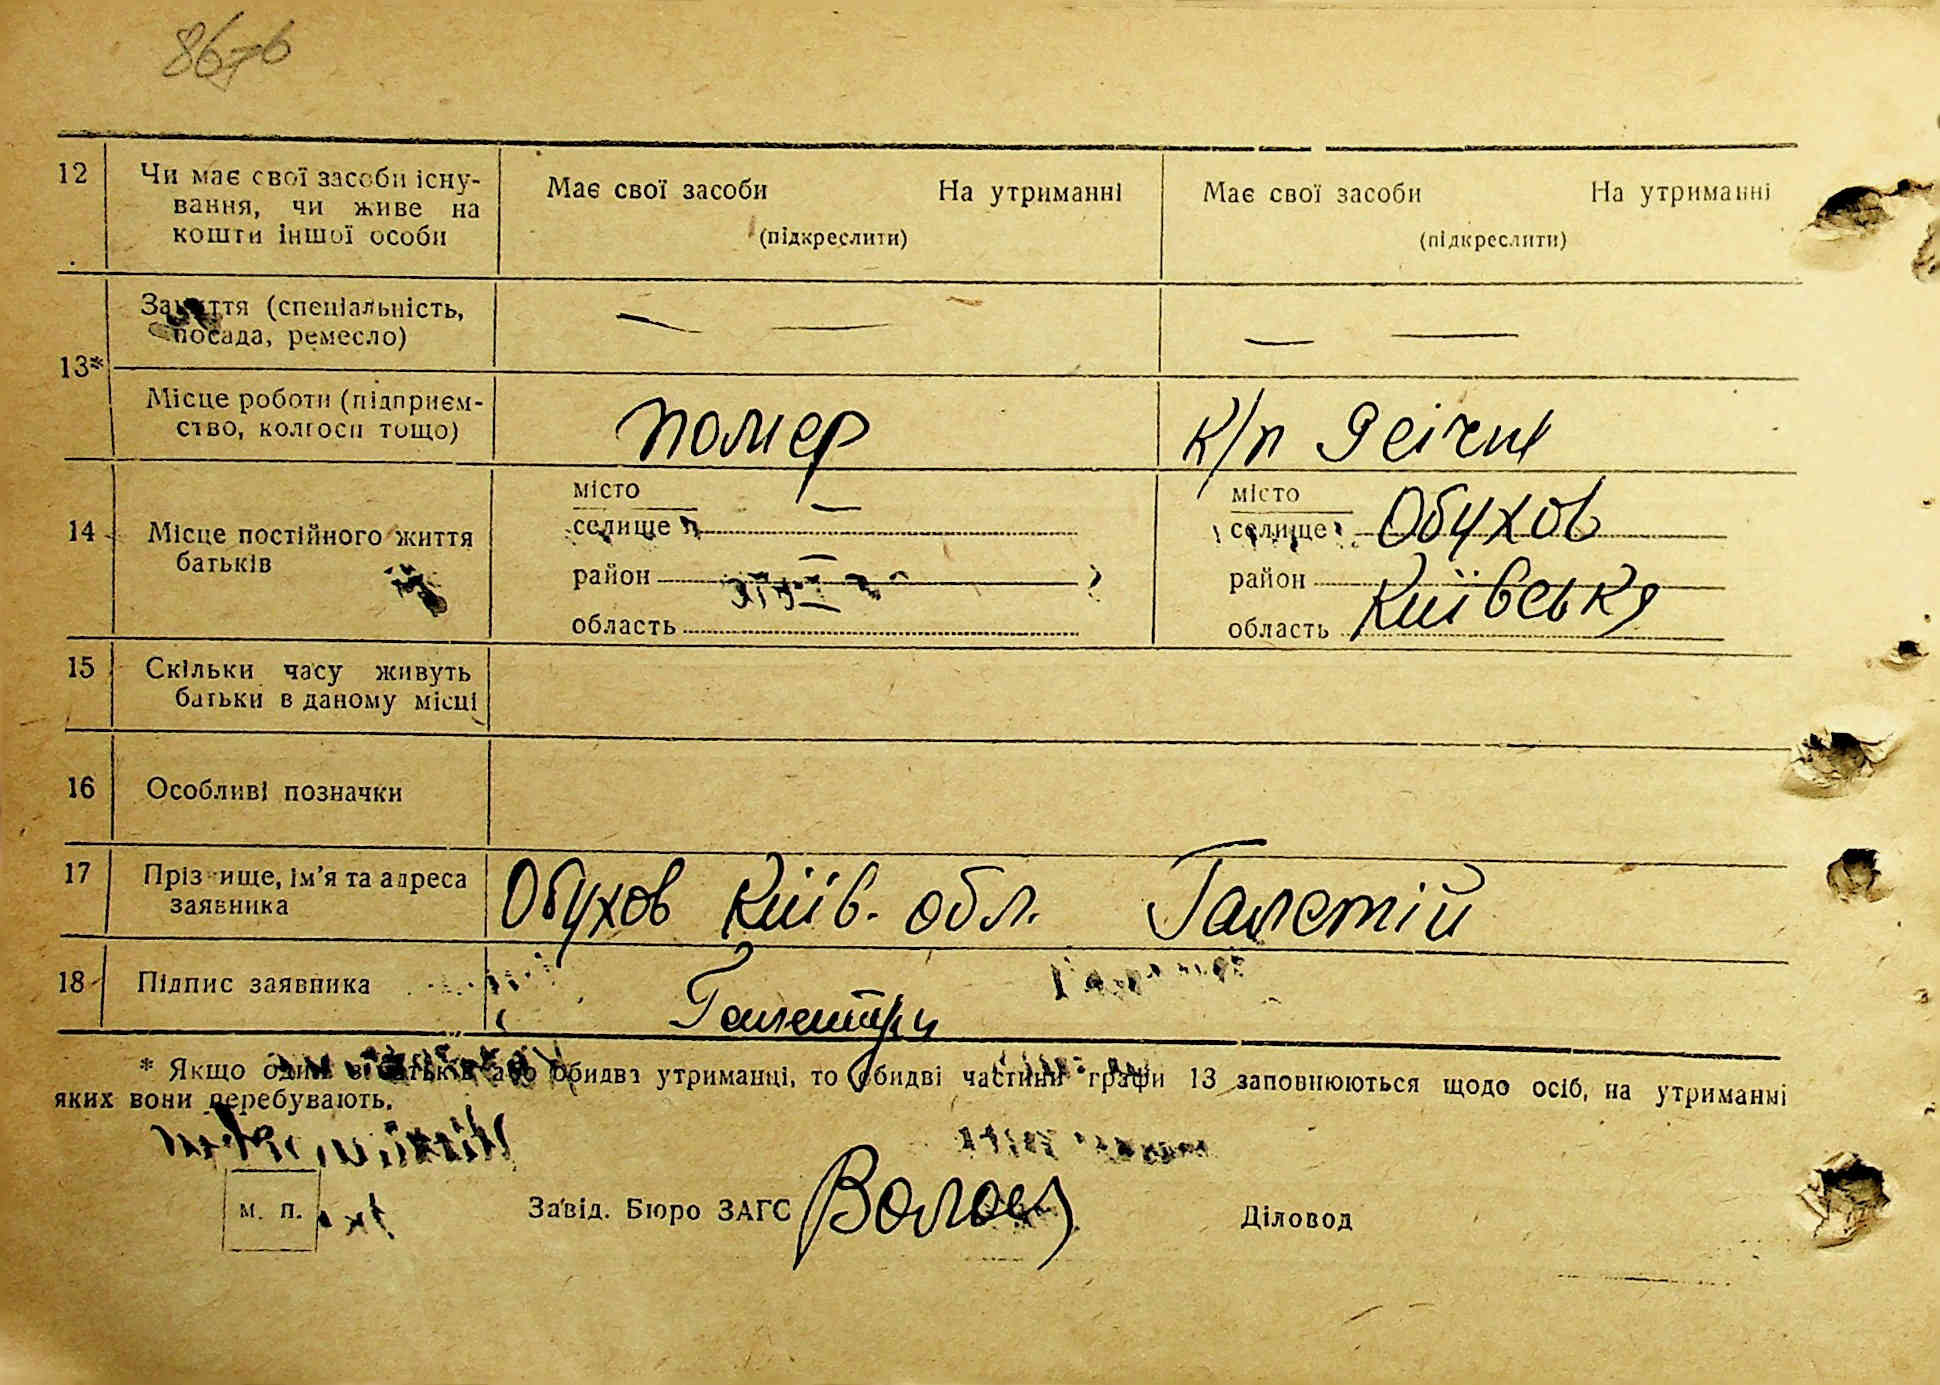 12 Чи має свої засоби існу-
вання, чи живе на
кошти іншої особи
Має свої засоби На утриманні
(підкреслити)
Має свої засоби На утриманні
(підкреслити)
13*
Заняття (спеціальність,
посада, ремесло)
— —
— —
Місце роботи (підприєм-
ство, колгосп тощо)
помер
к/п
14 Місце постійного життя
батьків
місто
селище —
район —
область —
місто
селище Обухов
район
область Київська
15 Скільки часу живуть
батьки в даному місці
16 Особливі позначки
17 Прізвище, ім'я та адреса
заявника
Обухов Київ. обл. Галетій
18 Підпис заявника
* Якщо один з батьків або обидва утриманці, то обидві частини графи 13 заповнюються щодо осіб, на утриманні
яких вони перебувають.
М. П.
Завід. Бюро ЗАГС
Діловод